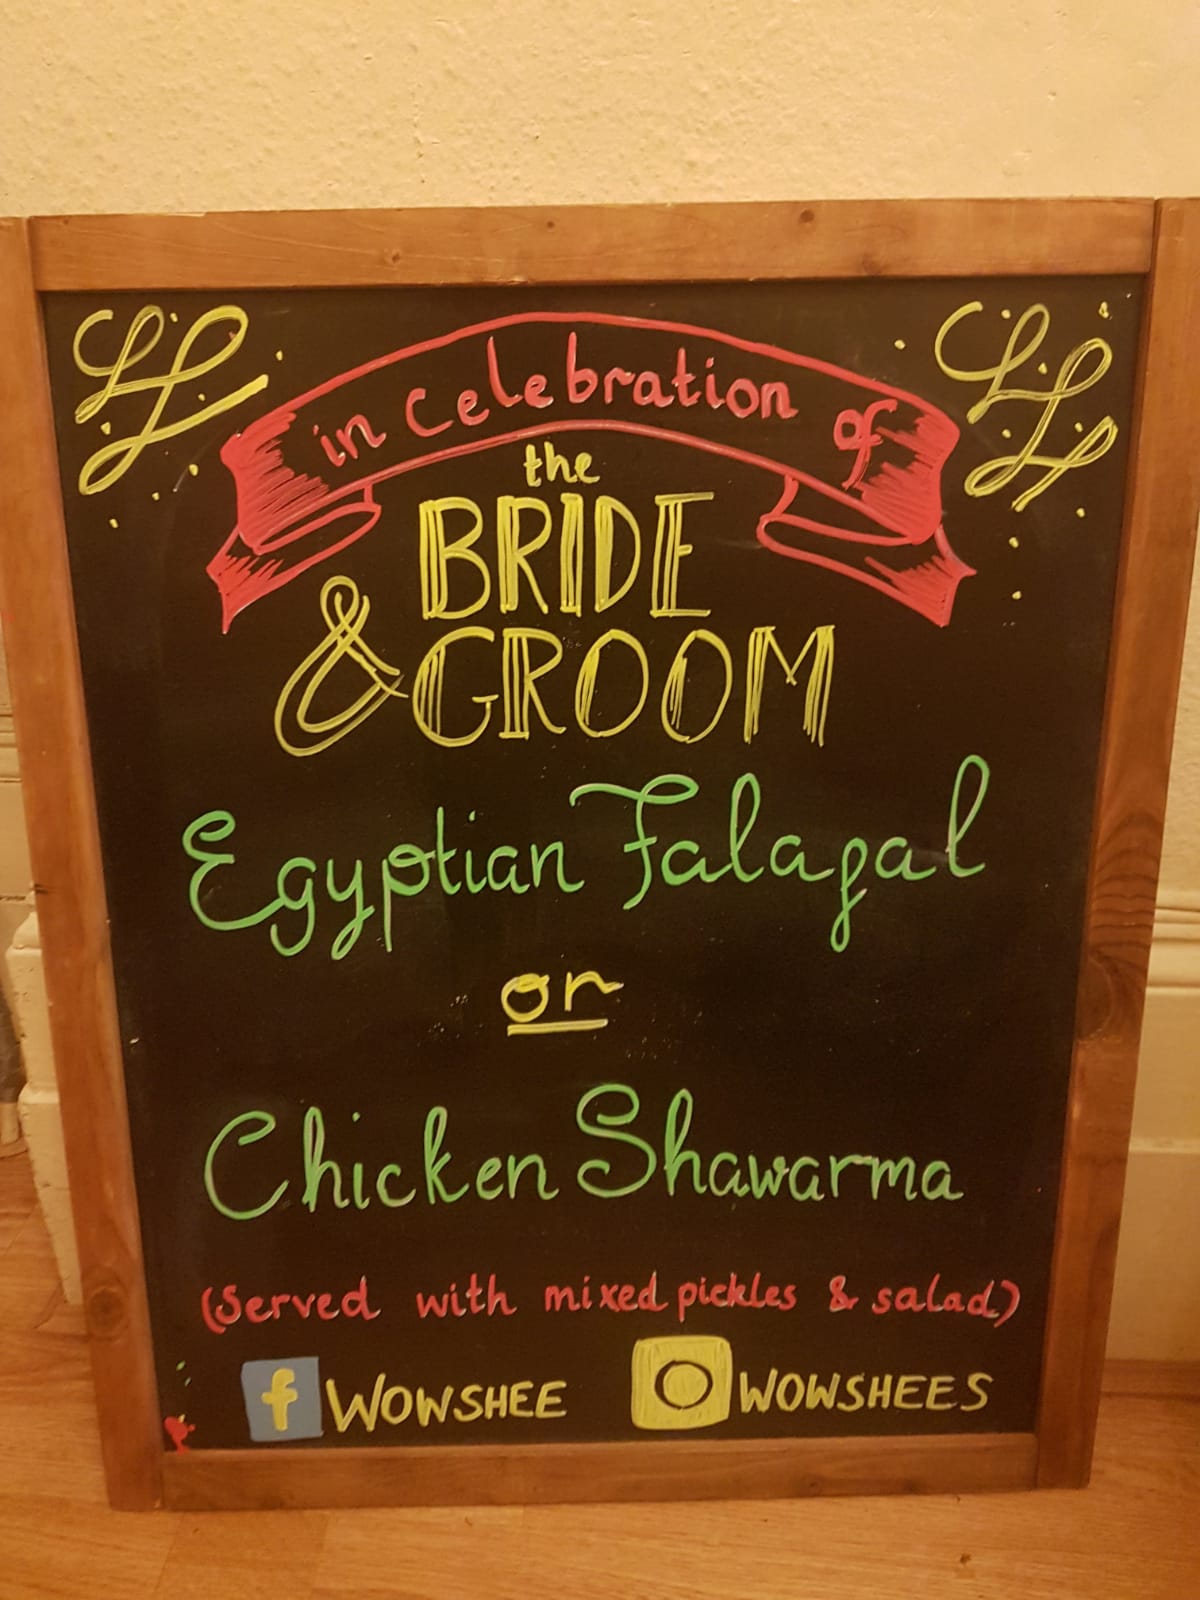 in celebration of
the
BRIDE
& GROOM
Egyptian Falafal
or
Chicken Shawarma
(Served with mixed pickles & salad)
f WOWSHEE
WOWSHEES